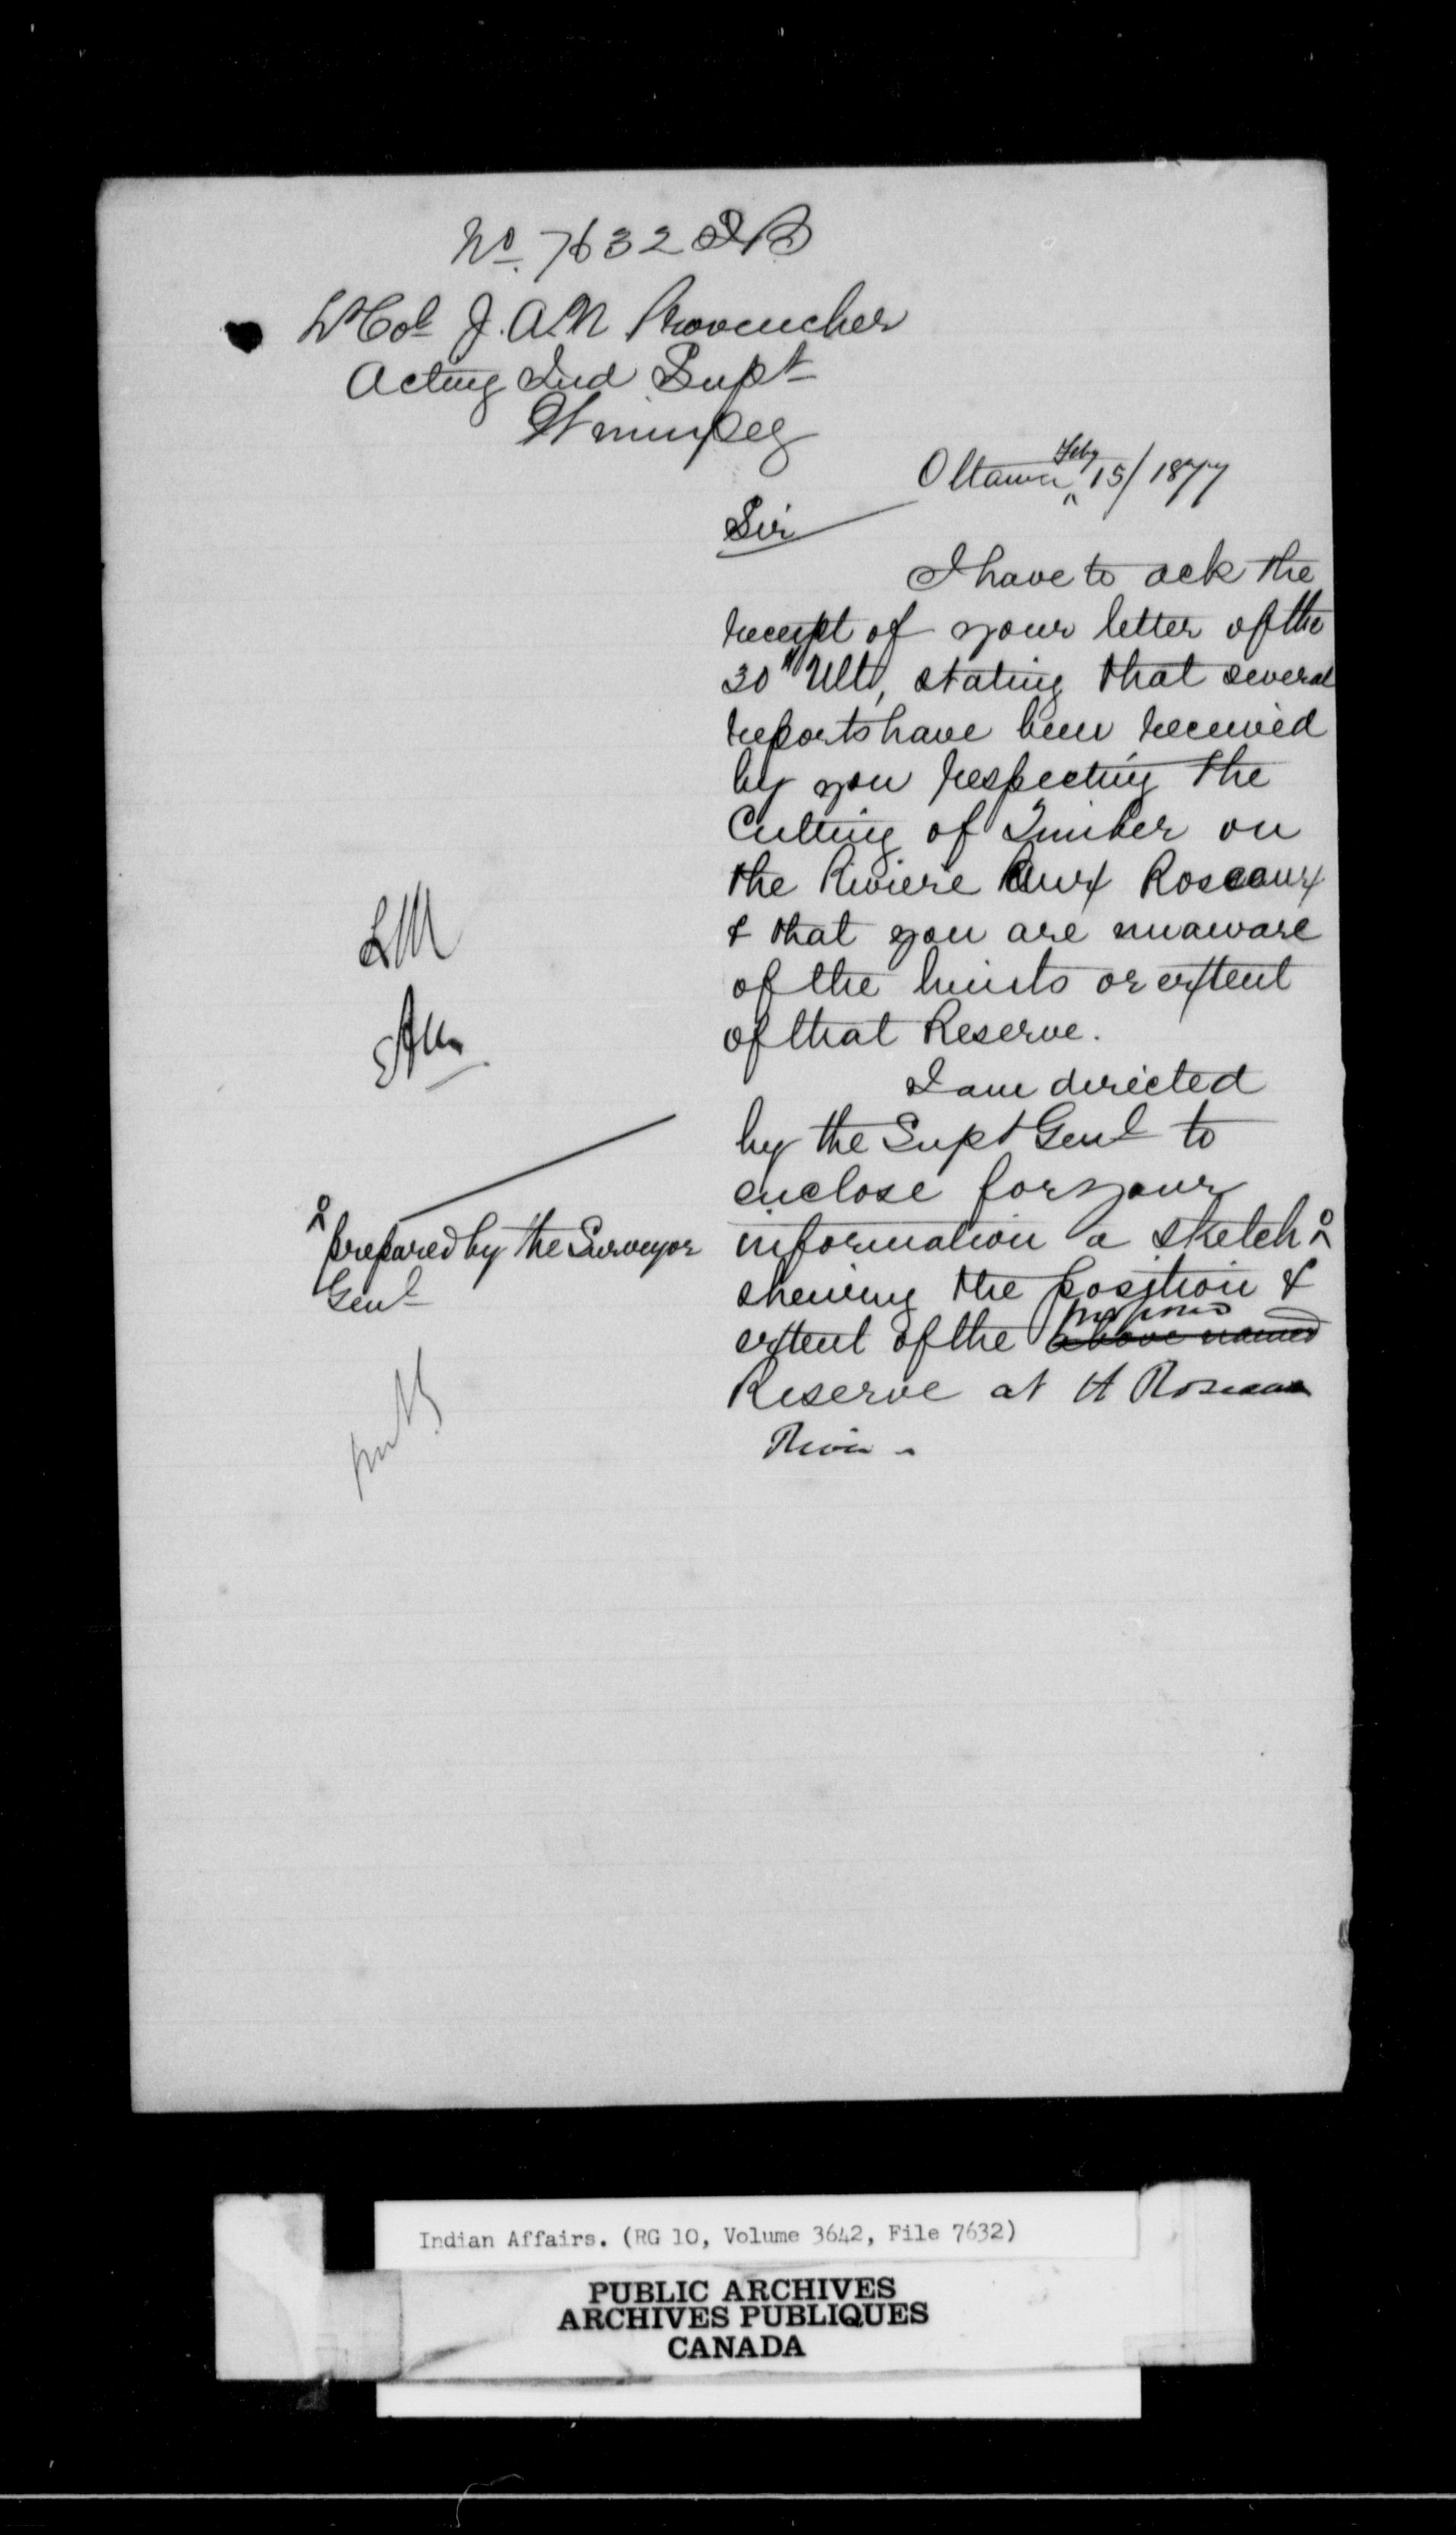 No. 7632 I B
Lt Col J. A. N Provencher
Acting Ind Supt
Winnipeg
Ottawa Feby 15/1877
Sir
I have to ack the
receipt of your letter of the
30th Ulto, stating that several
reports have been received
by you respecting the
Cutting of Timber on
the Riviere Aux Roseaux
& that you are unaware
of the limits or extent
of that Reserve.
I am directed
by the Supt Genl to
enclose for your
information a sketch
prepared by the Surveyor
Genl
shewing the position &
proposed
extent of the above named
Reserve at the Roseau
River
LM
Indian Affairs. (RG 10, Volume 3642, File 7632)
PUBLIC ARCHIVES
ARCHIVES PUBLIQUES
CANADA